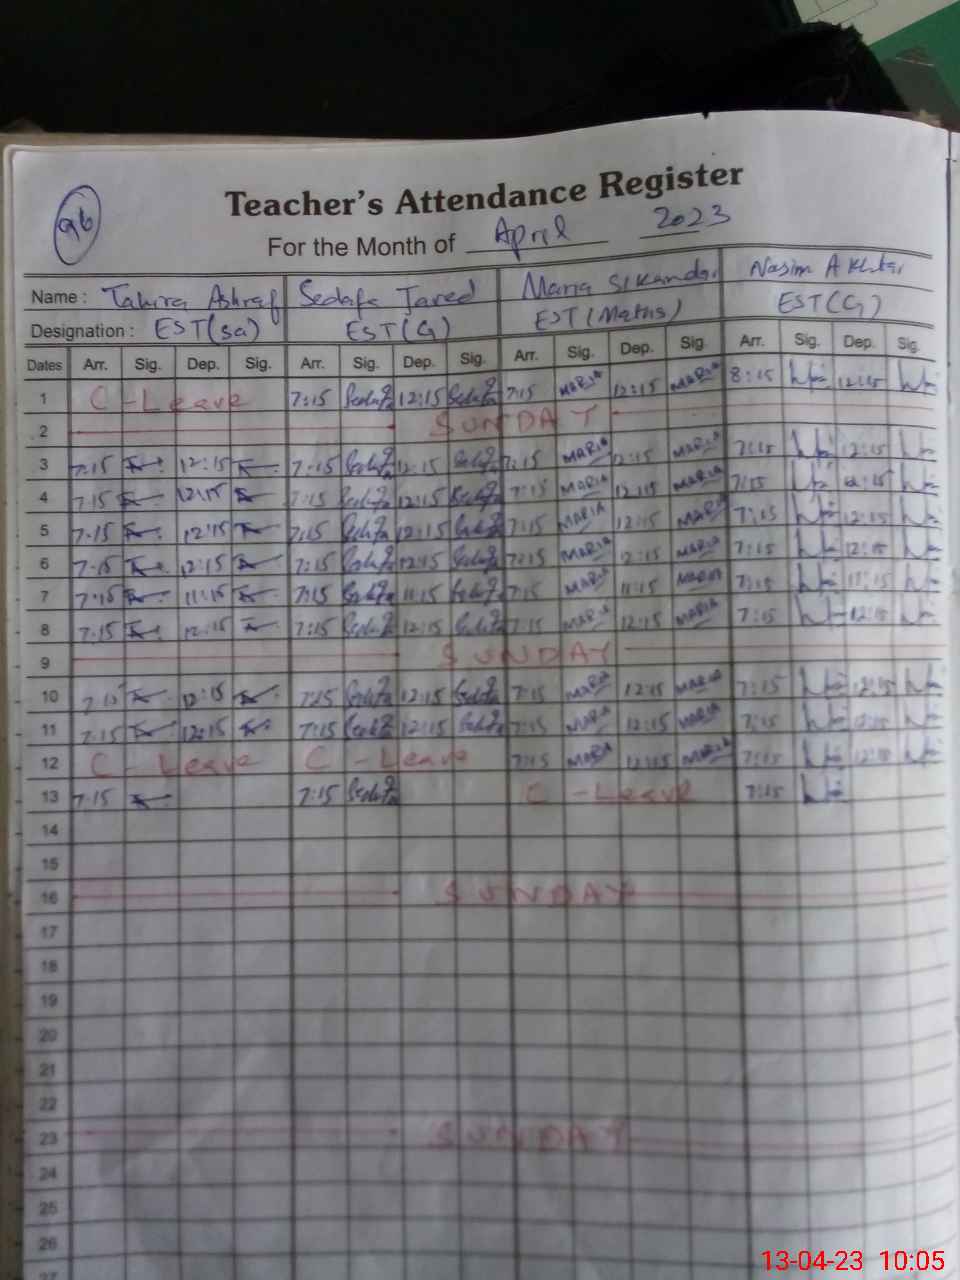 96
Teacher's Attendance Register
For the Month of April 2023
Name : Tahira Ashraf Sedafa Javed Maria Sikandar Nasim Akhtar
Designation : EST(Sci) EST(G) EST(Maths) EST(G)
Dates Arr. Sig. Dep. Sig. Arr. Sig. Dep. Sig. Arr. Sig. Dep. Sig. Arr. Sig. Dep. Sig.
1 C-Leave 7:15 12:15 7:15 MARIA 12:15 MARIA 8:15 12:15
2 SUNDAY
3 7:15 12:15 7:15 12:15 7:15 MARIA 12:15 MARIA 7:15 12:15
4 7:15 12:15 7:15 12:15 7:15 MARIA 12:15 MARIA 7:15 12:15
5 7:15 12:15 7:15 12:15 7:15 MARIA 12:15 MARIA 7:15 12:15
6 7:15 12:15 7:15 12:15 7:15 MARIA 12:15 MARIA 7:15 12:15
7 7:15 11:15 7:15 11:15 7:15 MARIA 11:15 MARIA 7:15 11:15
8 7:15 12:15 7:15 12:15 7:15 MARIA 12:15 MARIA 7:15 12:15
9 SUNDAY
10 7:15 12:15 7:15 12:15 7:15 MARIA 12:15 MARIA 7:15 12:15
11 7:15 12:15 7:15 12:15 7:15 MARIA 12:15 MARIA 7:15 12:15
12 C-Leave C-Leave 7:15 MARIA 12:15 MARIA 7:15 12:15
13 7:15 7:15 C-Leave 7:15
14
15
16 SUNDAY
17
18
19
20
21
22
23 SUNDAY
24
25
26
27
13-04-23 10:05